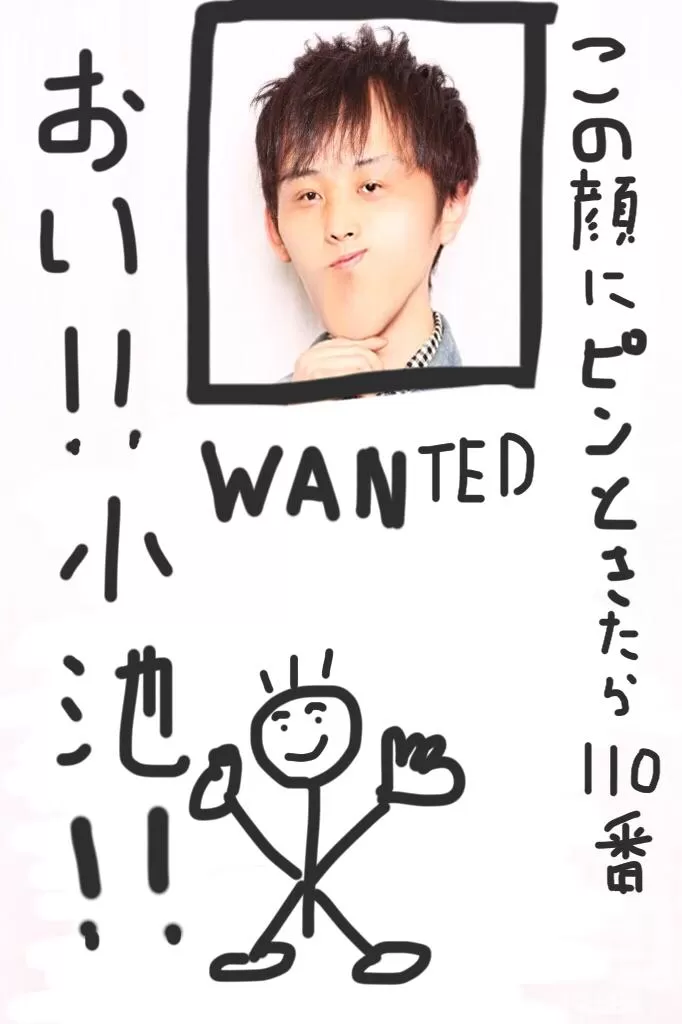 この顔にピンときたら110番
WANTED
おい!!小池!!